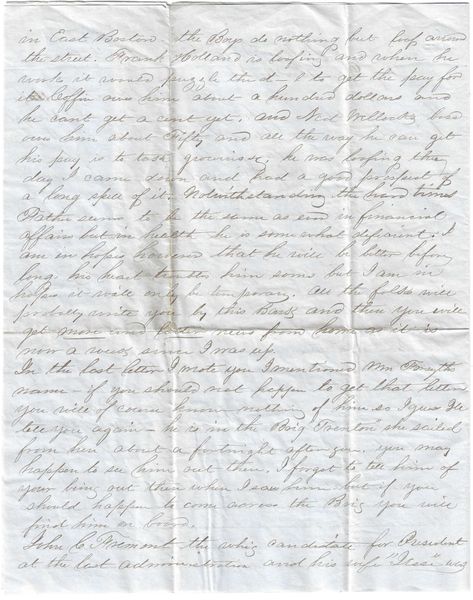 in East Boston the Boys do nothing but loaf around
the street. Frank Holland is loafing and when he
works it would puzzle the d—l to get the pay for
it. Coffin owes him about a hundred dollars and
he cant get a cent yet. and Ned Willocks
owes him about fifty and all the way he can get
his pay is to take groceries. he was loafing the
day I came down and had a good prospect of
a long spell of it. Notwithstanding the hard times
Father seems to be the same as ever in financial
affairs but in health he is some what deficient. I
am in hopes however that he will be better before
long his heart troubles him some but I am in
hopes it will only be temporary. All the folks will
probably write you by this Bark and then you will
get more and better news from home as it is
now a week since I was up.
In the last letter I wrote you I mentioned Wm Forsyths
name if you should not happen to get that letter
you will of course know nothing of him so I guess Ile
tell you again — he is in the Brig Trenton she sailed
from here about a fortnight after you. you may
happen to see him out there. I forgot to tell him of
your being out there when I saw him but if you
should happen to come across the Brig you will
find him on board.
John C Fremont the whig candidate for President
at the last administration and his wife "Jessie" was